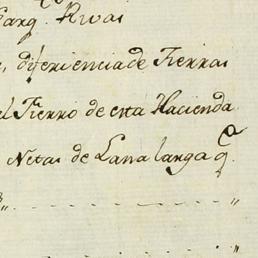 Marq. Rivas
, diferiencia de Tierras
el Fierro de esta Hacienda
Netas de Lana larga q.ª
" . . . . . . . "